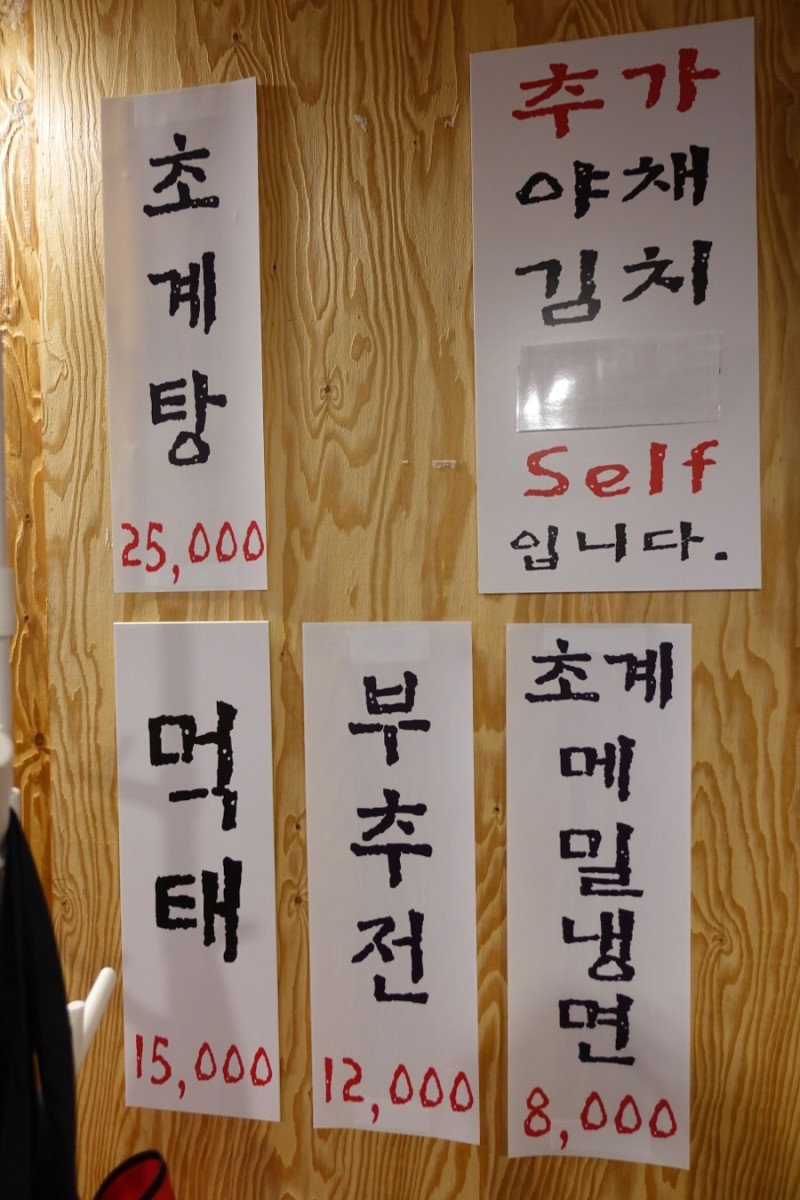 초
계
탕
25,000
추가
야채
김치
Self
입니다.
먹
태
15,000
부
추
전
12,000
초계
메
밀
냉
면
8,000